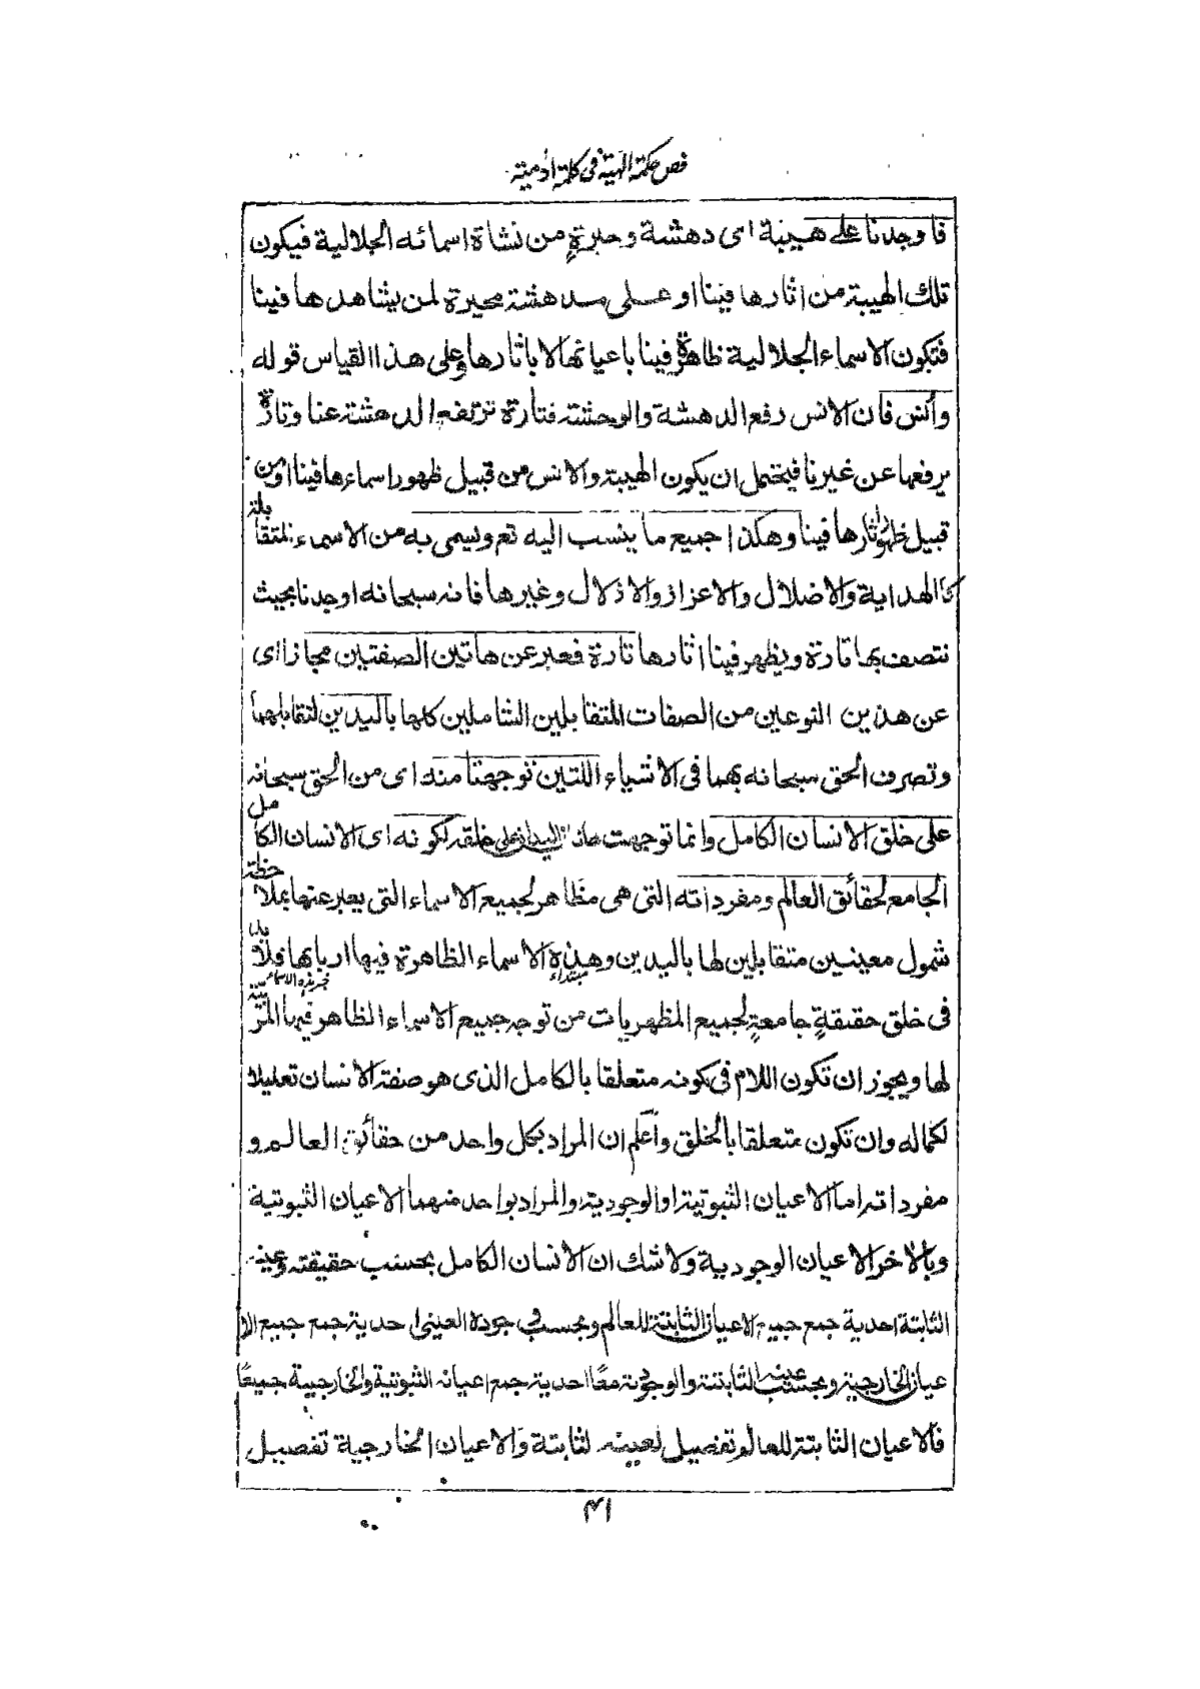 فص حكمة الهية فى كلمة ادمية
فاوجدنا على هيبة اى دهشة وحيرةٍ من نشاة اسمائه الجلالية فيكون
تلك الهيبة من اثارها فينا او على مدهشة محيرة لمن يشاهدها فينا
فتكون الاسماء الجلالية ظاهرة فينا باعيانها لا باثارها وعلى هذا القياس قوله
وانس فان الانس رفع الدهشة والوحشة فتارة ترتفع الدهشة عنا وتارة
يرفعها عن غيرنا فيحتمل ان يكون الهيبة والانس من قبيل ظهور اسماءها فينا او من
قبيل ظهور اثارها فينا وهكذا جميع ما ينسب اليه تع ويسمى به من الاسماء المتقابلة
كالهداية والاضلال والاعزاز والاذلال وغيرها فانه سبحانه اوجدنا بحيث
نتصف بها تارة ويظهر فينا اثارها تارة فعبر عن هاتين الصفتين مجازا اى
عن هذين النوعين من الصفات المتقابلين الشاملين كلها باليدين لتقابلهما
وتصرف الحق سبحانه بهما فى الاشياء اللتين توجهتا منه اى من الحق سبحانه
على خلق الانسان الكامل وانما توجهت هاتان اليدان على خلقه لكونه اى الانسان الكامل
الجامع لحقائق العالم ومفرداته التى هى مظاهر لجميع الاسماء التى يعبر عنها بملاحظة
شمول معينين متقابلين لها باليدين وهذه الاسماء الظاهرة فيها اربابها فلابد
مبتداء
خبر هذه الاسماء
فى خلق حقيقةٍ جامعةٍ لجميع المظهريات من توجه جميع الاسماء الظاهر فيها المرتبة
لها ويجوز ان تكون اللام فى كونه متعلقا بالكامل الذى هو صفة الانسان تعليلا
لكماله وان تكون متعلقا بالخلق واعلم ان المراد بكل واحد من حقائق العالم و
مفرداته اما الاعيان الثبوتية او الوجودية والمراد بواحد منهما الاعيان الثبوتية
وبالاخر الاعيان الوجودية ولا شك ان الانسان الكامل بحسب حقيقته وعينه
الثابتة احدية جمع جميع الاعيان الثابتة للعالم وبحسب وجوده العينى احدية جمع جميع الا
عيان الخارجية وبحسب عينه الثابتة والوجودية معًا احدية جمع اعيانه الثبوتية والخارجية جميعًا
فالاعيان الثابتة للعالم تفصيل لعينه الثابتة والاعيان الخارجية تفصيل
٤١